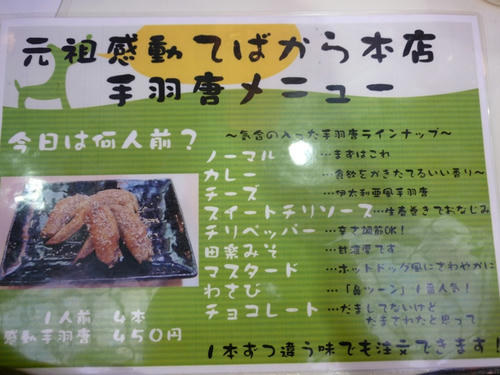 元祖感動てばから本店
手羽唐メニュー
今日は何人前?
～気合の入った手羽唐ラインナップ～
ノーマル …まずはこれ
カレー …食欲をかきたてるいい香り～
チーズ …伊太利亜風手羽唐
スイートチリソース …生春巻きでおなじみ
チリペッパー …辛さ調節OK!
田楽みそ …甘濃厚です
マスタード …ホットドッグ風にさわやかに
わさび …「鼻ツーン」1番人気!
チョコレート …だましてないけど
だまされたと思って
1人前 4本
感動手羽唐 450円
1本ずつ違う味でも注文できます!